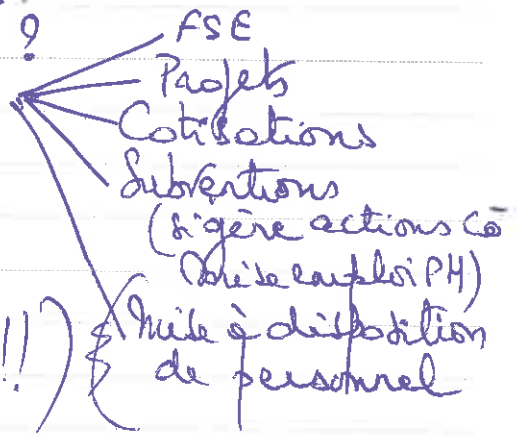 ?
FSE
Projets
Cotisations
Subventions
(si gère actions Co
mise emploi PH)
!!) { Mise à disposition
de personnel